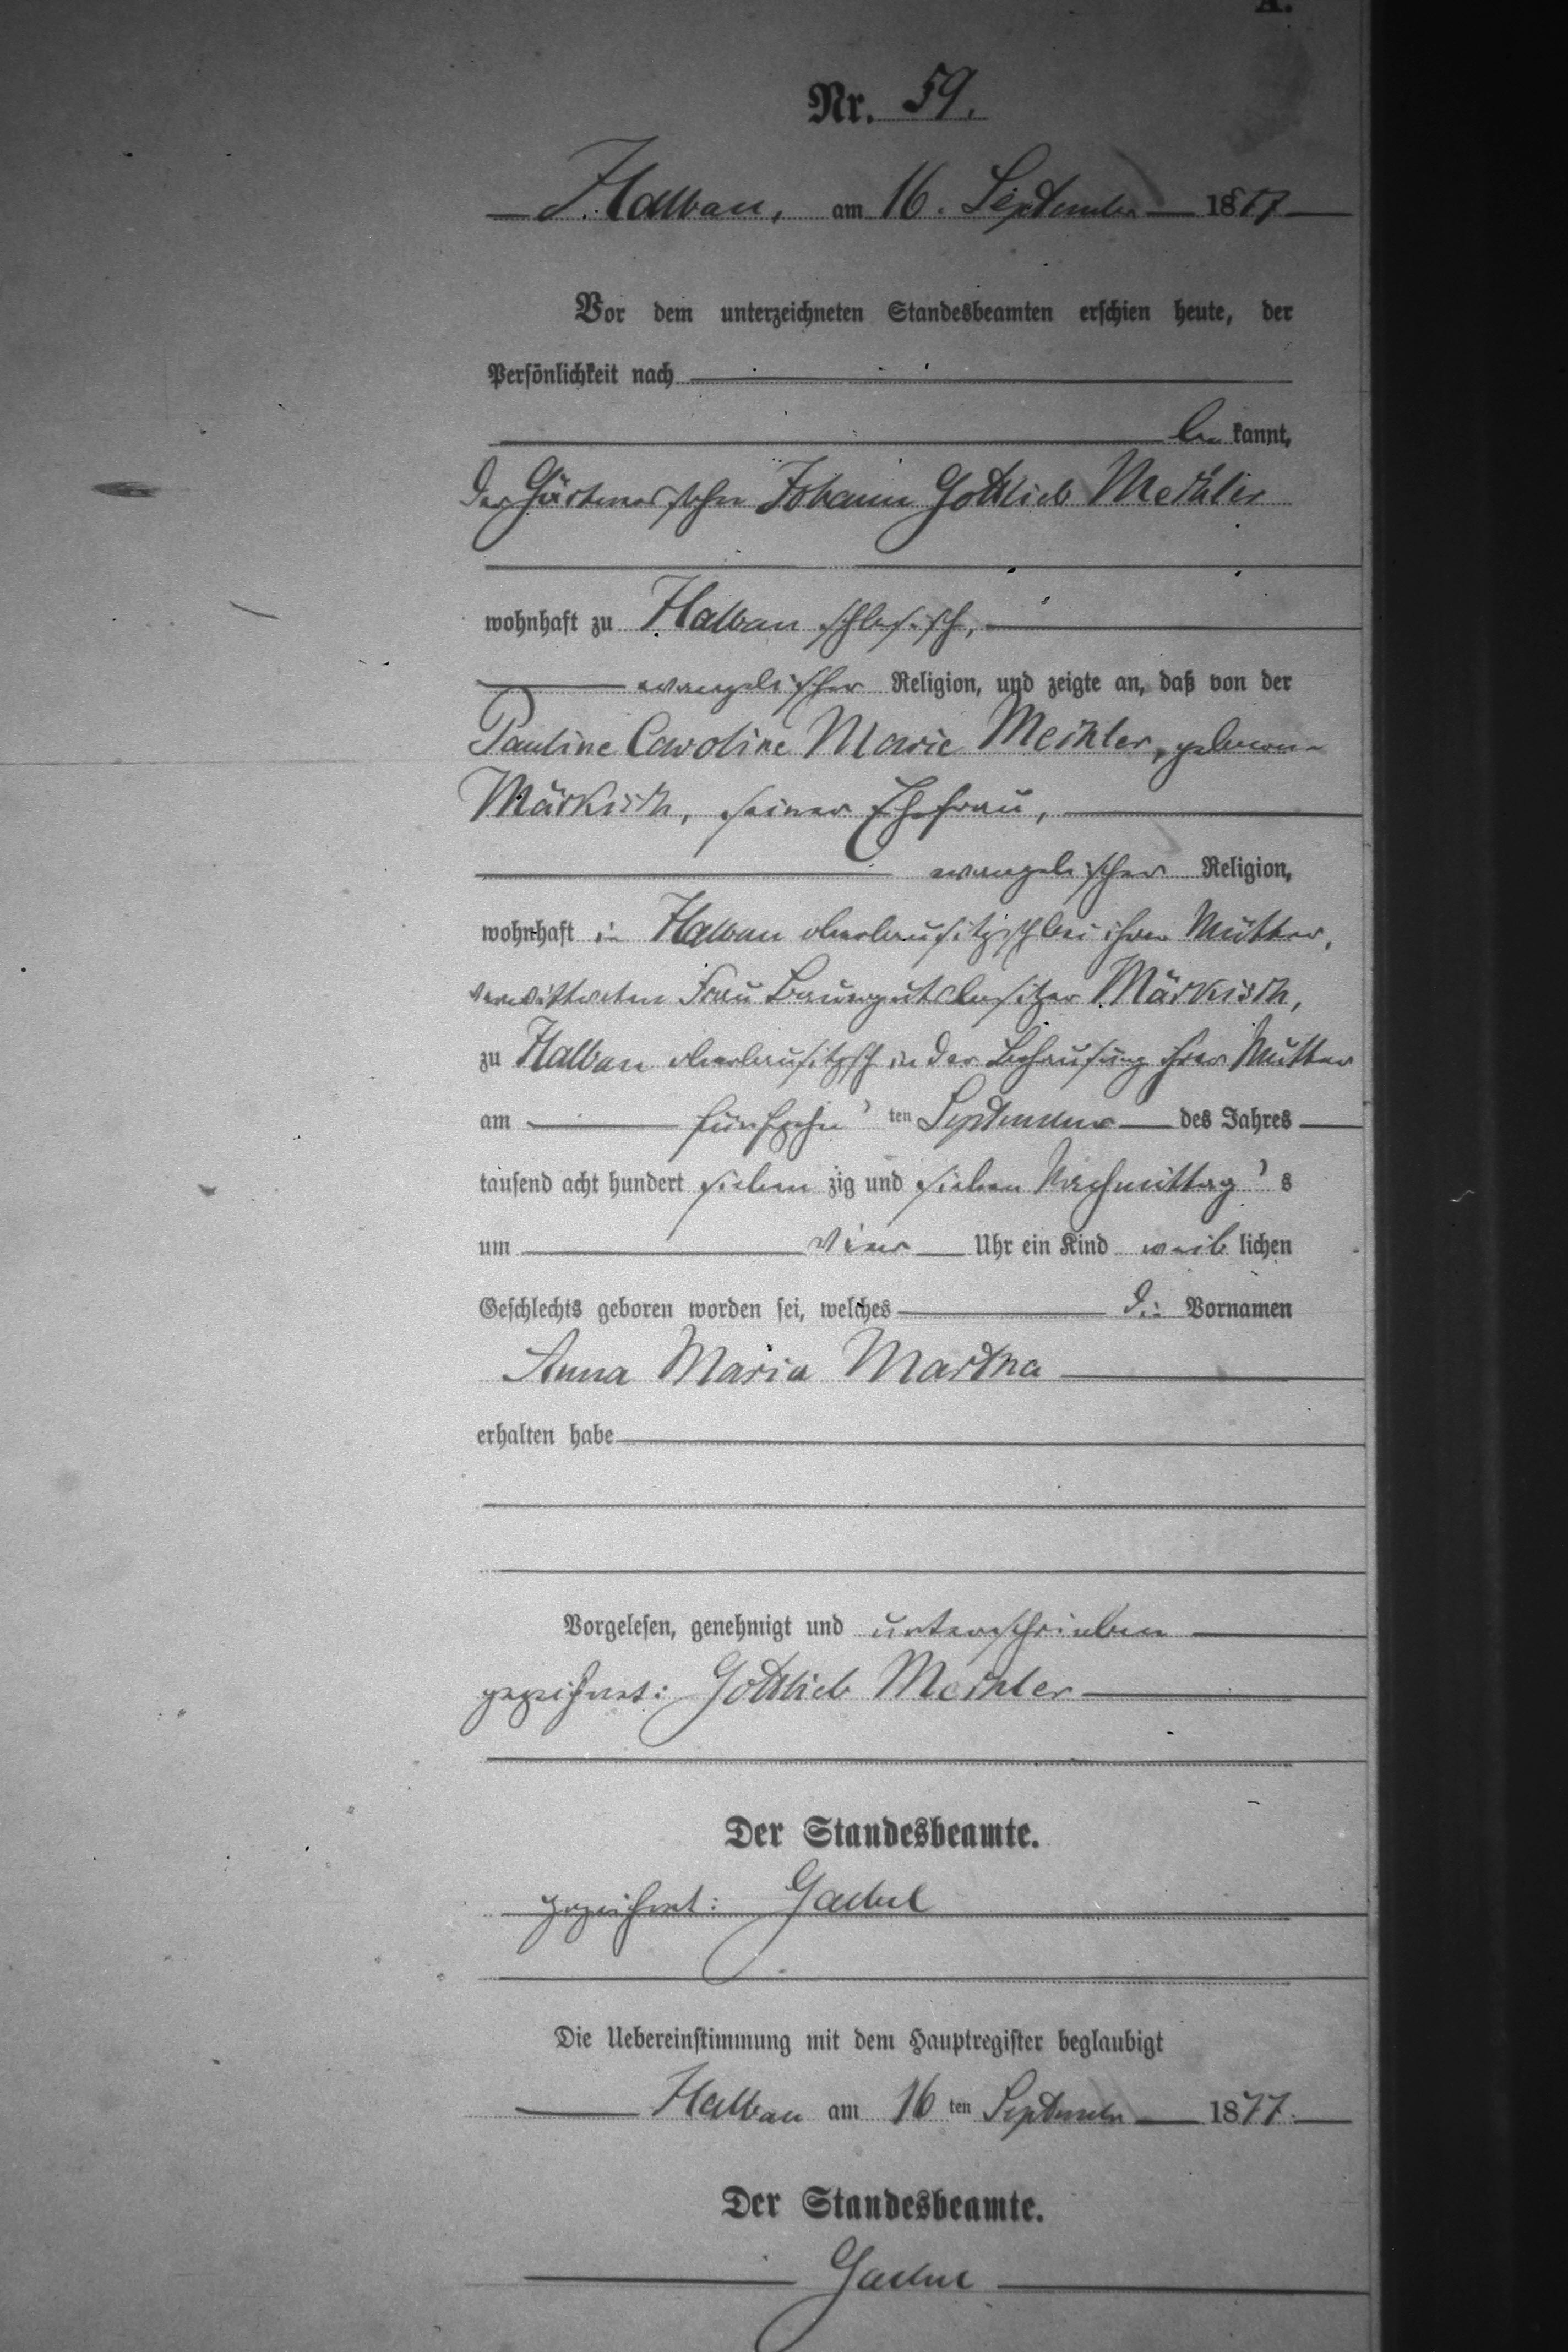 A.
Nr. 59.
Halbau, am 16. September 1877
Vor dem unterzeichneten Standesbeamten erschien heute, der
Persönlichkeit nach
be kannt,
der Gärtnersohn Johann Gottlieb Mechler
wohnhaft zu Halbau schlesisch,
evangelischer Religion, und zeigte an, daß von der
Pauline Caroline Marie Mechler, geborene
Märkisch, seiner Ehefrau,
evangelischer Religion,
wohnhaft in Halbau oberlausitzisch bei ihrer Mutter,
verwittweten Frau Bauergutsbesitzer Märkisch,
zu Halbau oberlausitzisch in der Behausung ihrer Mutter
am fünfzehn ten September des Jahres
tausend acht hundert sieben zig und sieben Nachmittag s
um vier Uhr ein Kind weib lichen
Geschlechts geboren worden sei, welches die Vornamen
Anna Maria Martha
erhalten habe
Vorgelesen, genehmigt und unterschrieben
gezeichnet: Gottlieb Mechler
Der Standesbeamte.
gezeichnet:
Die Uebereinstimmung mit dem Hauptregister beglaubigt
Halbau am 16 ten September 1877.
Der Standesbeamte.